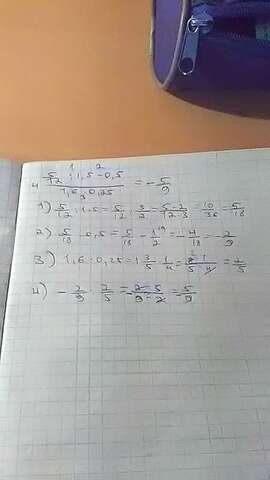 1 2
5/12 : 1,5 - 0,5
4 ――――― = - 5/9
1,6 · 0,25
3
1) 5/12 : 1,5 = 5/12 : 3/2 = 5·2/12·3 = 10/36 = 5/18
2) 5/18 - 0,5 = 5/18 - 1/2 = - 4/18 = - 2/9
3) 1,6 · 0,25 = 1 3/5 · 1/4 = 2/5
4) - 2/9 : 2/5 = - 2·5/9·2 = - 5/9